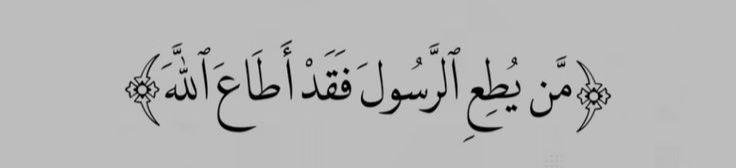 ﴿مَّن يُطِعِ ٱلرَّسُولَ فَقَدْ أَطَاعَ ٱللَّهَ﴾